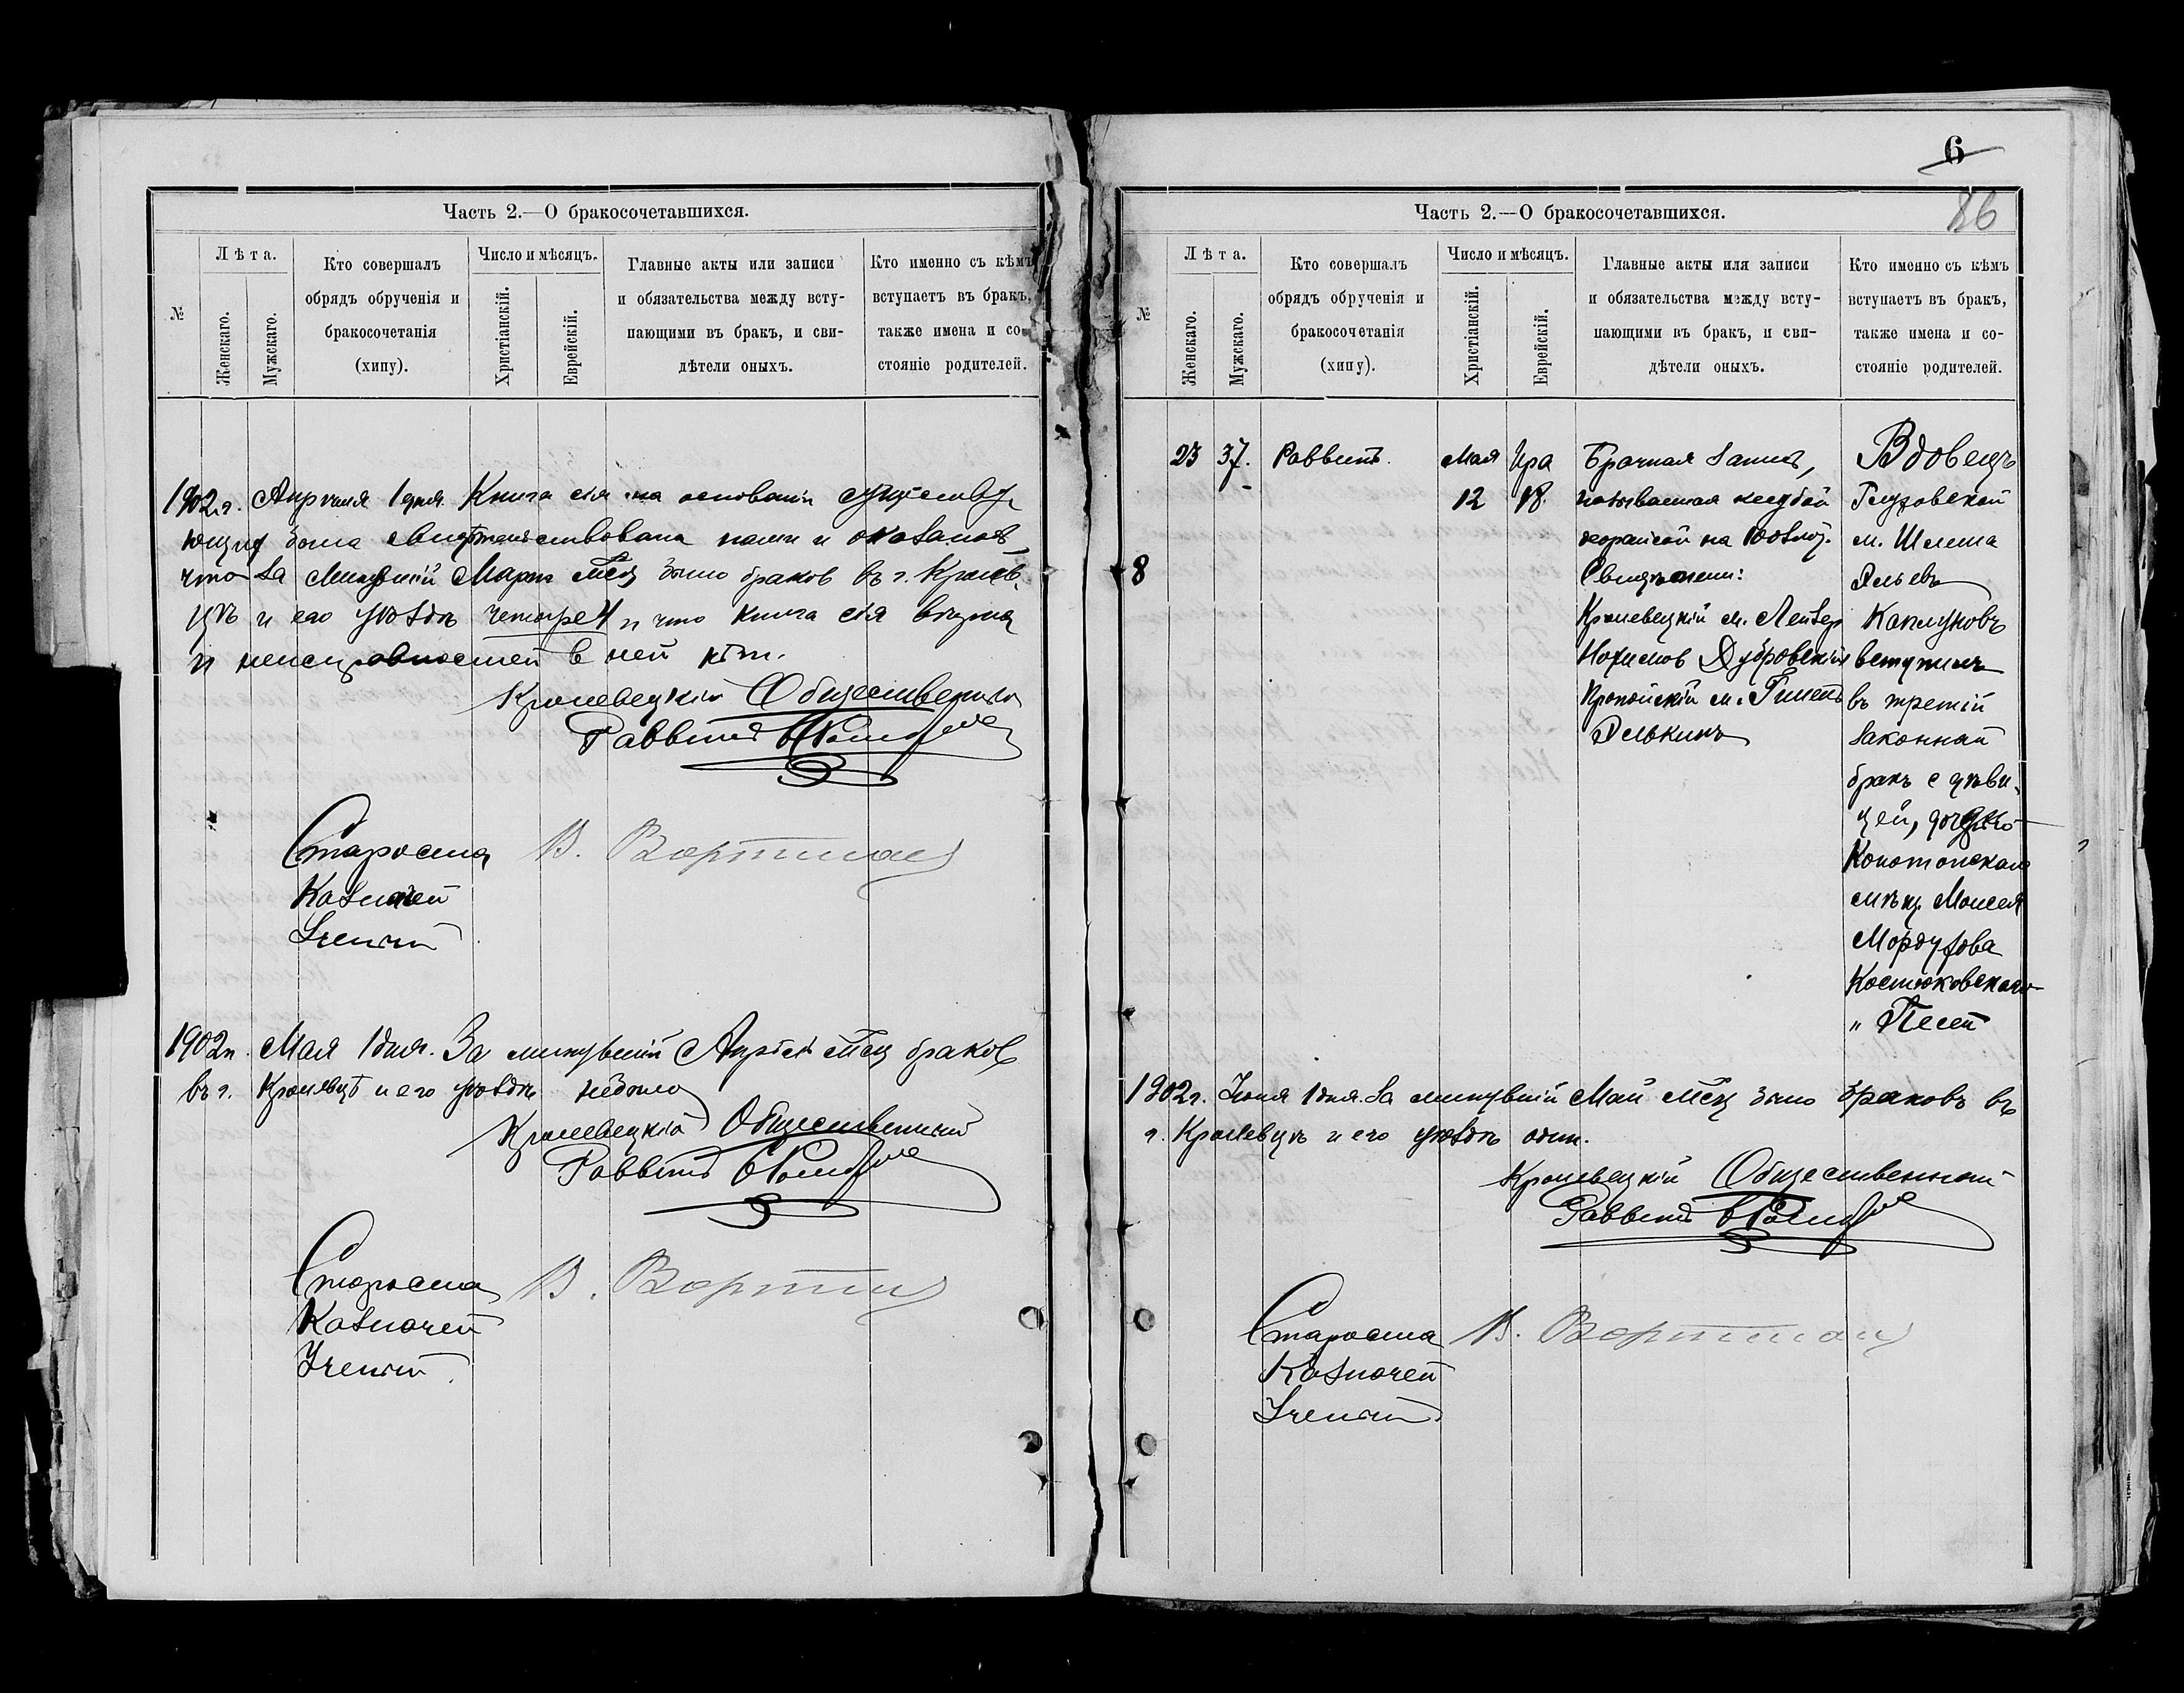 Часть 2.—О бракосочетавшихся.
№
Лѣта.
Женскаго.
Мужскаго.
Кто совершалъ
обрядъ обрученія и
бракосочетанія
(хипу).
Число и мѣсяцъ.
Христіанскій.
Еврейскій.
Главные акты или записи
и обязательства между всту-
пающими въ бракъ, и сви-
дѣтели оныхъ.
Кто именно съ кѣмъ
вступаетъ въ бракъ,
также имена и со-
стояніе родителей.
1902 г. Апрѣля 1 дня. Книга сія на основаніи существу
ющих была свидѣтельствована нами и оказалось
что за минувшій Мартъ мѣсц было браков въ г. Кролев-
цѣ и его уѣздѣ четыре 4 и что книга сія вѣрна
и неисправностей в ней нѣт.
Кролевецкій Общественный
Раввинъ
Староста В. Вортман
Казначей
Ученый
1902 г. Мая 1 дня. За минувшій Апрѣль мѣсц браков
въ г. Кролевцѣ и его уѣздѣ небыло
Кролевецкій Общественный
Раввинъ
Староста В. Вортман
Казначей
Ученый
6
86
Часть 2.—О бракосочетавшихся.
№
Лѣта.
Женскаго.
Мужскаго.
Кто совершалъ
обрядъ обрученія и
бракосочетанія
(хипу).
Число и мѣсяцъ.
Христіанскій.
Еврейскій.
Главные акты или записи
и обязательства между всту-
пающими въ бракъ, и сви-
дѣтели оныхъ.
Кто именно съ кѣмъ
вступаетъ въ бракъ,
также имена и со-
стояніе родителей.
8
23 37. Раввинъ. Мая 12 Ира 18.
Брачная запись,
называемая кесубой
на 100 злот.
Свидѣтели:
Кролевецкій м. Лейзер
Нохимов Дубровскій
Пропойскій м. Гилель
Элькинъ
Вдовецъ
Глуховской
м. Шлема
Эльевъ
Каплуновъ
вступилъ
въ третій
законный
бракъ с дѣви-
цей, дочерью
Конотопскаго
мѣщ. Моисея
Мордухова
Костюковскаго
" Песей
1902 г. Іюня 1 дня. За минувшій Май мѣсц было браковъ въ
г. Кролевцѣ и его уѣздѣ один.
Кролевецкій Общественный
Раввинъ
Староста В. Вортман
Казначей
Ученый